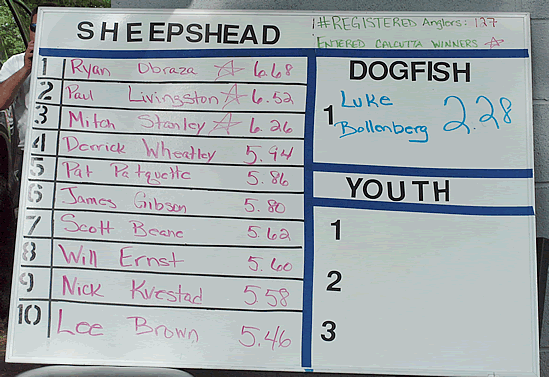 SHEEPSHEAD
1 Ryan Obraza ☆ 6.68
2 Paul Livingston ☆ 6.52
3 Mitch Stanley ☆ 6.26
4 Derrick Wheatley 5.94
5 Pat Patquette 5.86
6 James Gibson 5.80
7 Scott Beane 5.62
8 Will Ernst 5.60
9 Nick Kvestad 5.58
10 Lee Brown 5.46
#REGISTERED Anglers: 127
ENTERED CALCUTTA WINNERS ☆
DOGFISH
1 Luke Bollenberg 2.28
YOUTH
1
2
3